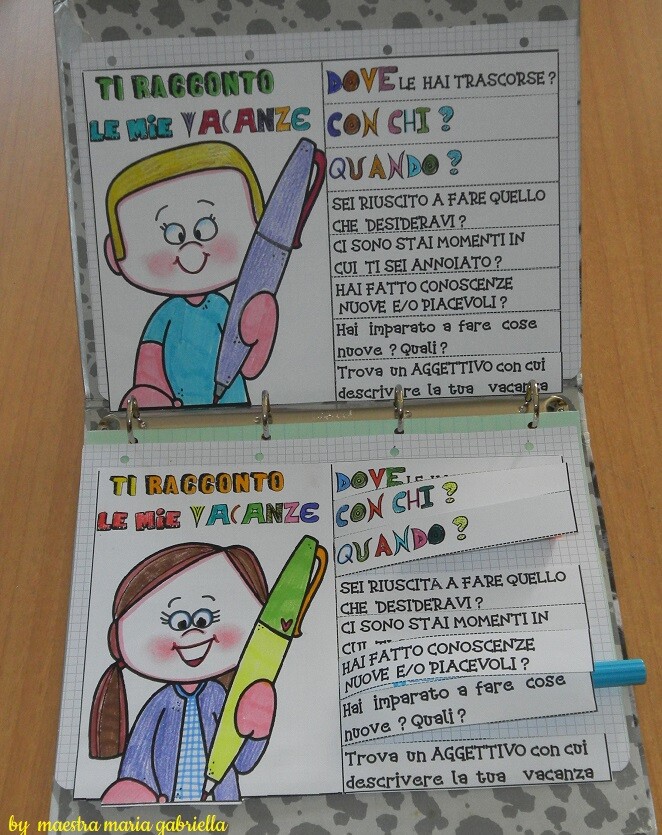 TI RACCONTO
LE MIE VACANZE
DOVE LE HAI TRASCORSE ?
CON CHI ?
QUANDO ?
SEI RIUSCITO A FARE QUELLO
CHE DESIDERAVI ?
CI SONO STAI MOMENTI IN
CUI TI SEI ANNOIATO ?
HAI FATTO CONOSCENZE
NUOVE E/O PIACEVOLI ?
Hai imparato a fare cose
nuove ? Quali ?
Trova un AGGETTIVO con cui
descrivere la tua vacanza
TI RACCONTO
LE MIE VACANZE
DOVE
CON CHI ?
QUANDO ?
SEI RIUSCITA A FARE QUELLO
CHE DESIDERAVI ?
CI SONO STAI MOMENTI IN
HAI FATTO CONOSCENZE
NUOVE E/O PIACEVOLI ?
Hai imparato a fare cose
nuove ? Quali ?
Trova un AGGETTIVO con cui
descrivere la tua vacanza
by maestra maria gabriella